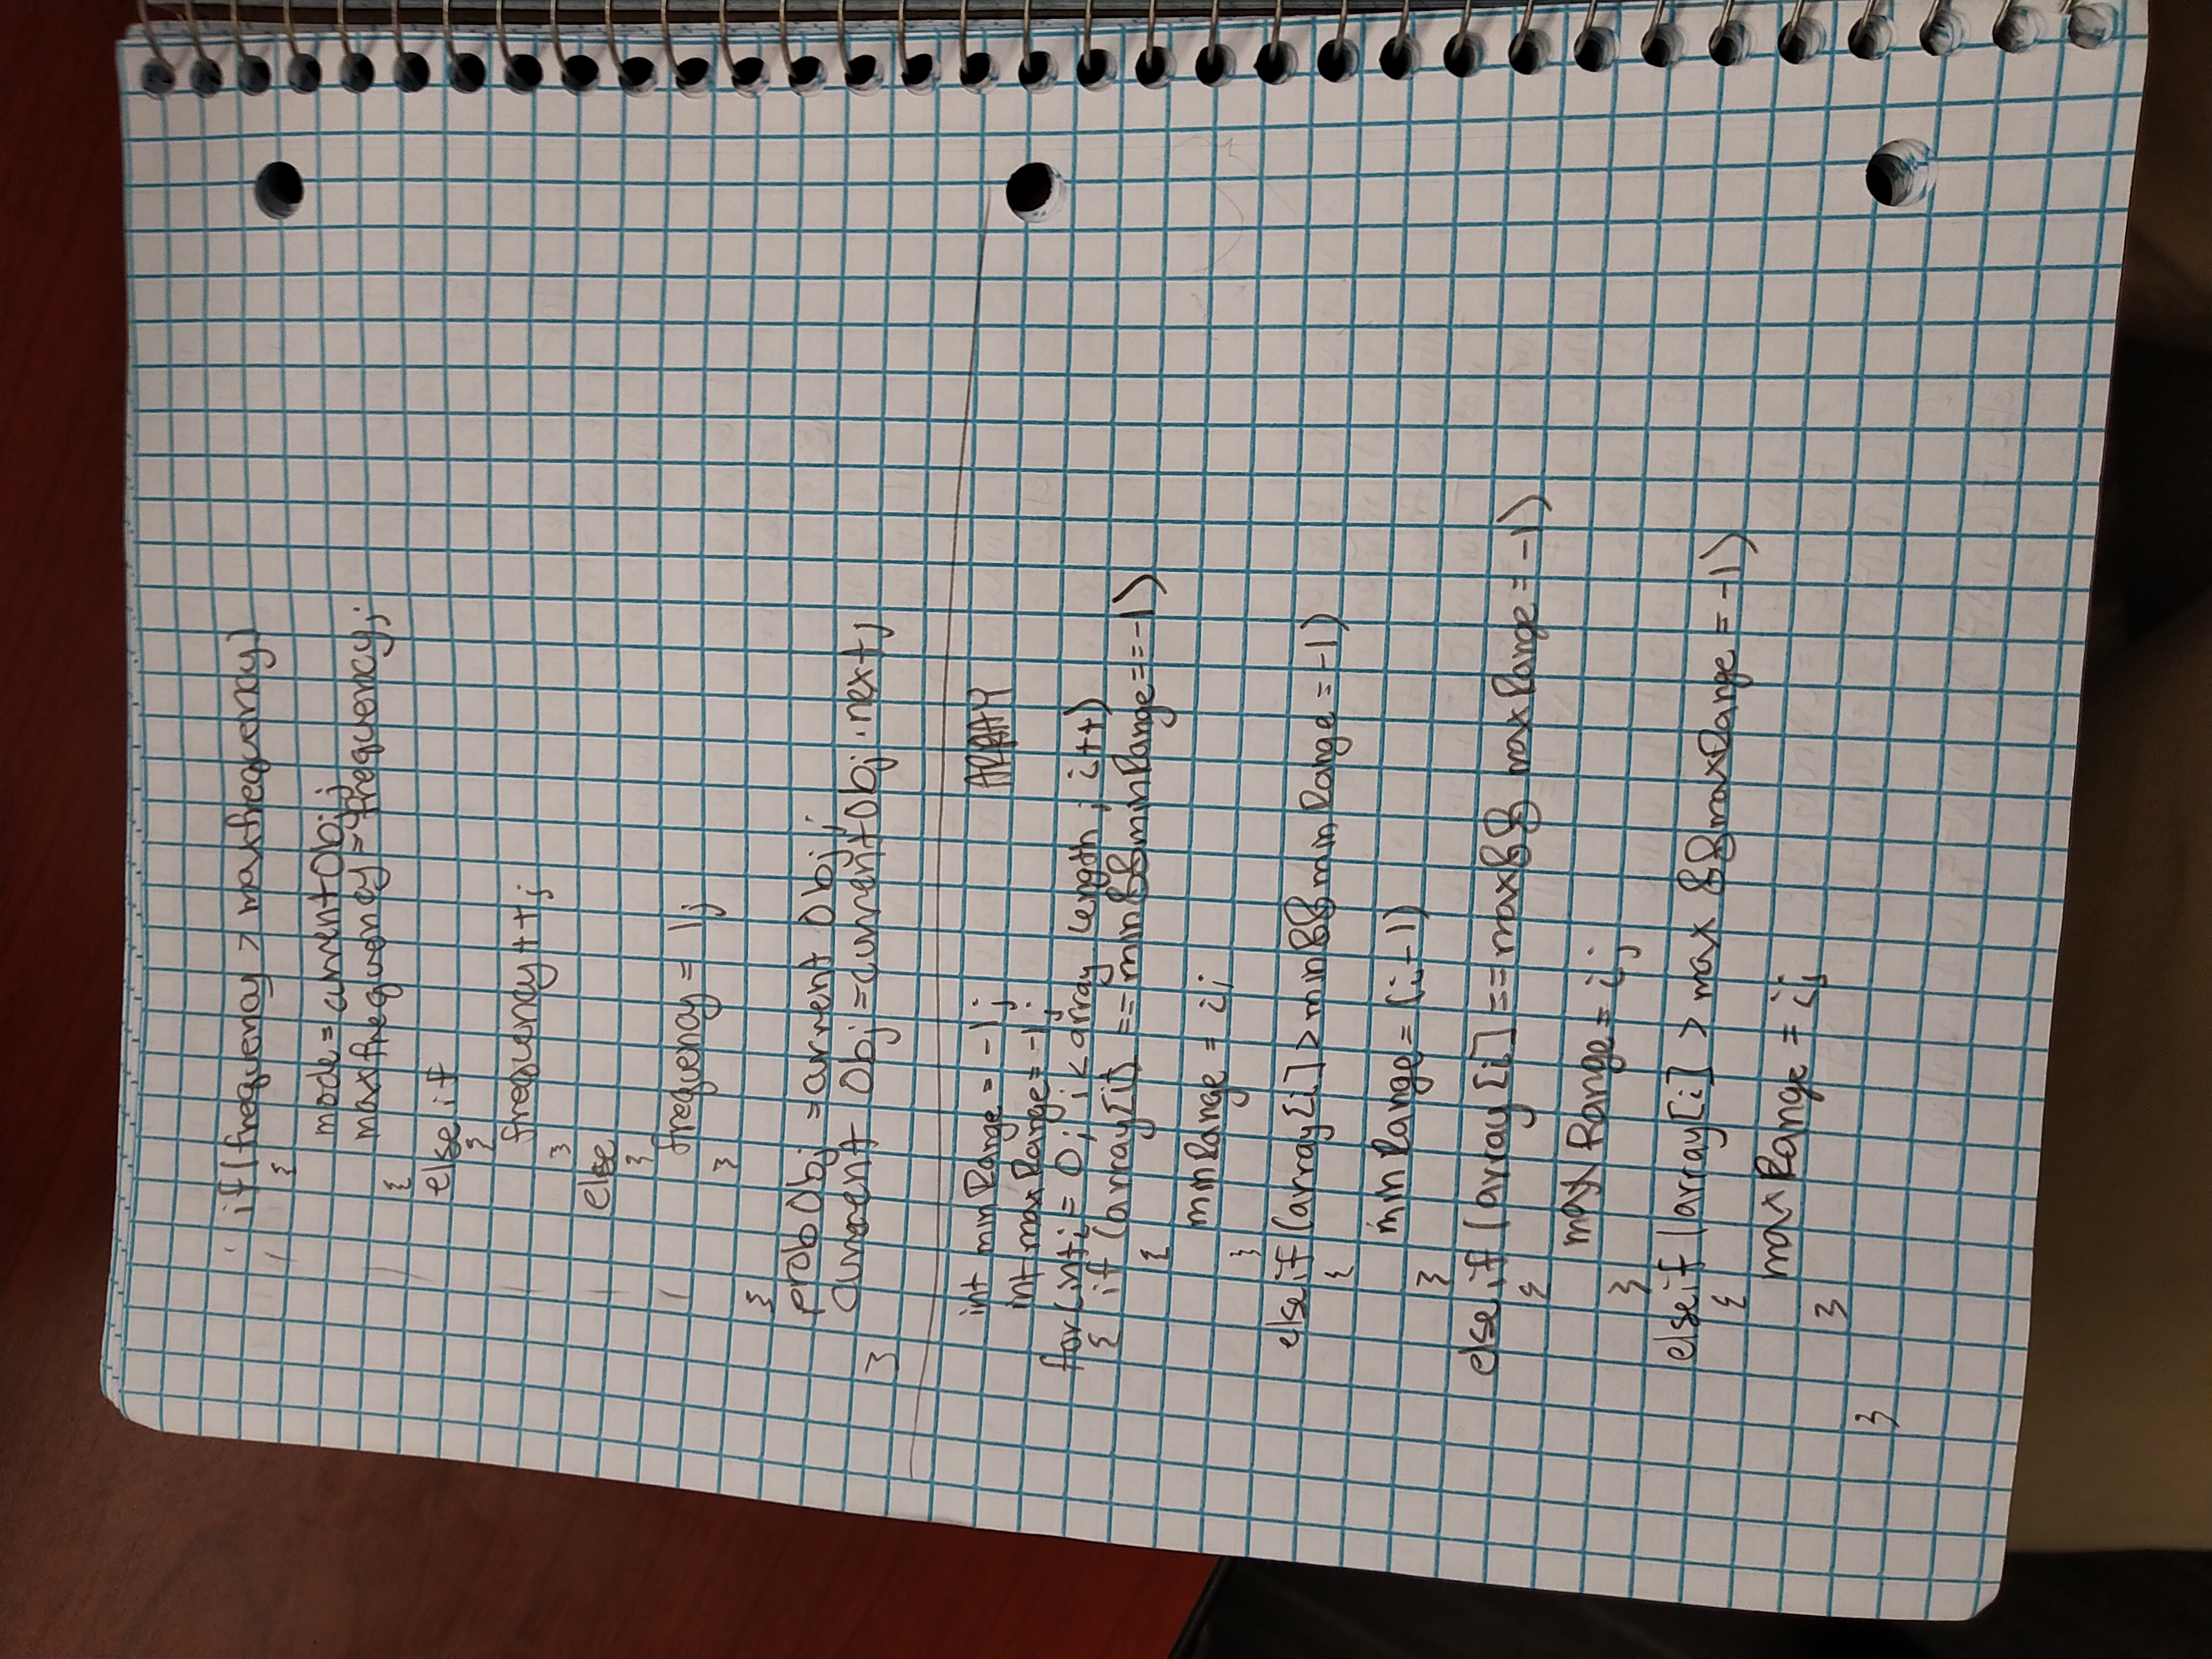 if(frequency > maxfrequency)
{
mode = currentObj;
maxfrequency = frequency;
}
else if
{
frequency++;
}
else
{
frequency = 1;
}
}
prob Obj = current Obj;
Current Obj = current Obj.next;
}
int minRange = -1;
int maxRange = -1;
for(int i = 0; i < array.length; i++)
{ if (array[i] == min && minRange == -1)
{
minRange = i;
}
else if (array[i] > min && minRange = -1)
{
minRange = (i-1)
}
else if (array[i] == max && maxRange = -1)
{
maxRange = i;
}
else if (array[i] > max && maxRange = -1)
{
maxRange = i;
}
}